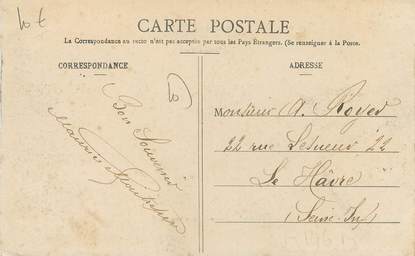 10 t
CARTE POSTALE
La Correspondance au recto n'est pas acceptée par tous les Pays Étrangers. (Se renseigner à la Poste.
CORRESPONDANCE
Bon Souvenir
ADRESSE
Monsieur A. Royer
22 rue Lesueur 22
Le Hâvre
(Seine-Inf)